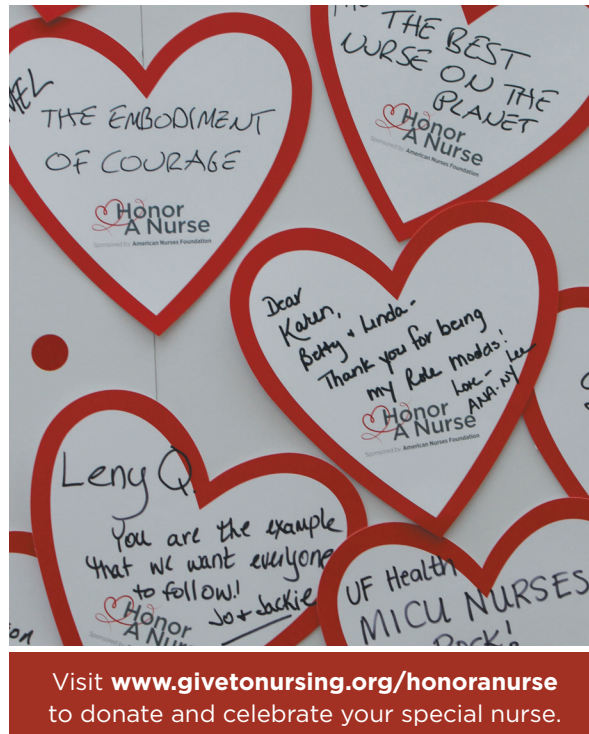 MEL
THE EMBODIMENT
OF COURAGE
Honor
A Nurse
Sponsored by American Nurses Foundation
THE BEST
NURSE ON THE
PLANET
Honor
A Nurse
Sponsored by American Nurses Foundation
Dear
Karen,
Betty + Linda-
Thank you for being
my Role Models!
Love- Lee
ANA-NY
Honor
A Nurse
Sponsored by American Nurses Foundation
Leny Q.
You are the example
that we want everyone
to follow!
Jo + Jackie
Honor
A Nur
UF Health
MICU NURSES
ROCK!
on
Visit www.givetonursing.org/honoranurse
to donate and celebrate your special nurse.